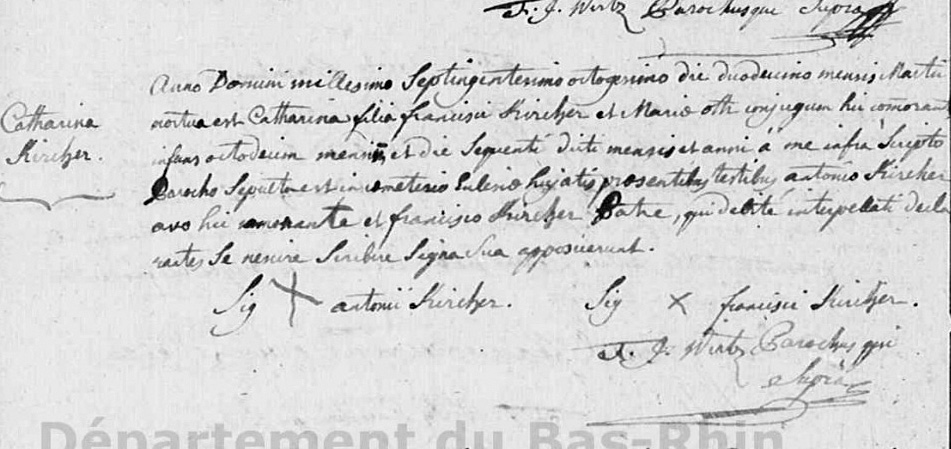 F. J. Wirtz Parochus qui Supra
Anno Domini millesimo Septingentesimo octogesimo die duodecimo mensis Martii
Catharina
Kircher.
mortua est Catharina filia francisci Kircher et Mariæ oth conjugum hic comorant
infans octodecim mensium et die Sequenti dicti mensis et anni á me infrá Scripto
Parocho Sepulta est in cœmeterio Ecclesiæ hujatis præsentibus testibus antonio Kircher
avo hic comorante et francisco Kircher Patre, qui debite interpellati decla
rantes Se nescire Scribere Signa Sua apposuerunt.
Sig X antonii Kircher. Sig X francisci Kircher.
F. J. Wirtz Parochus qui
Supra
Département du Bas-Rhin